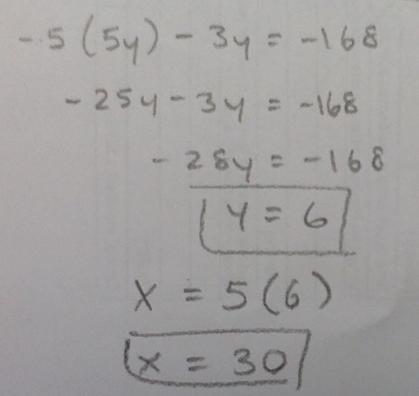 -5(5y) - 3y = -168
-25y - 3y = -168
-28y = -168
y = 6
x = 5(6)
x = 30